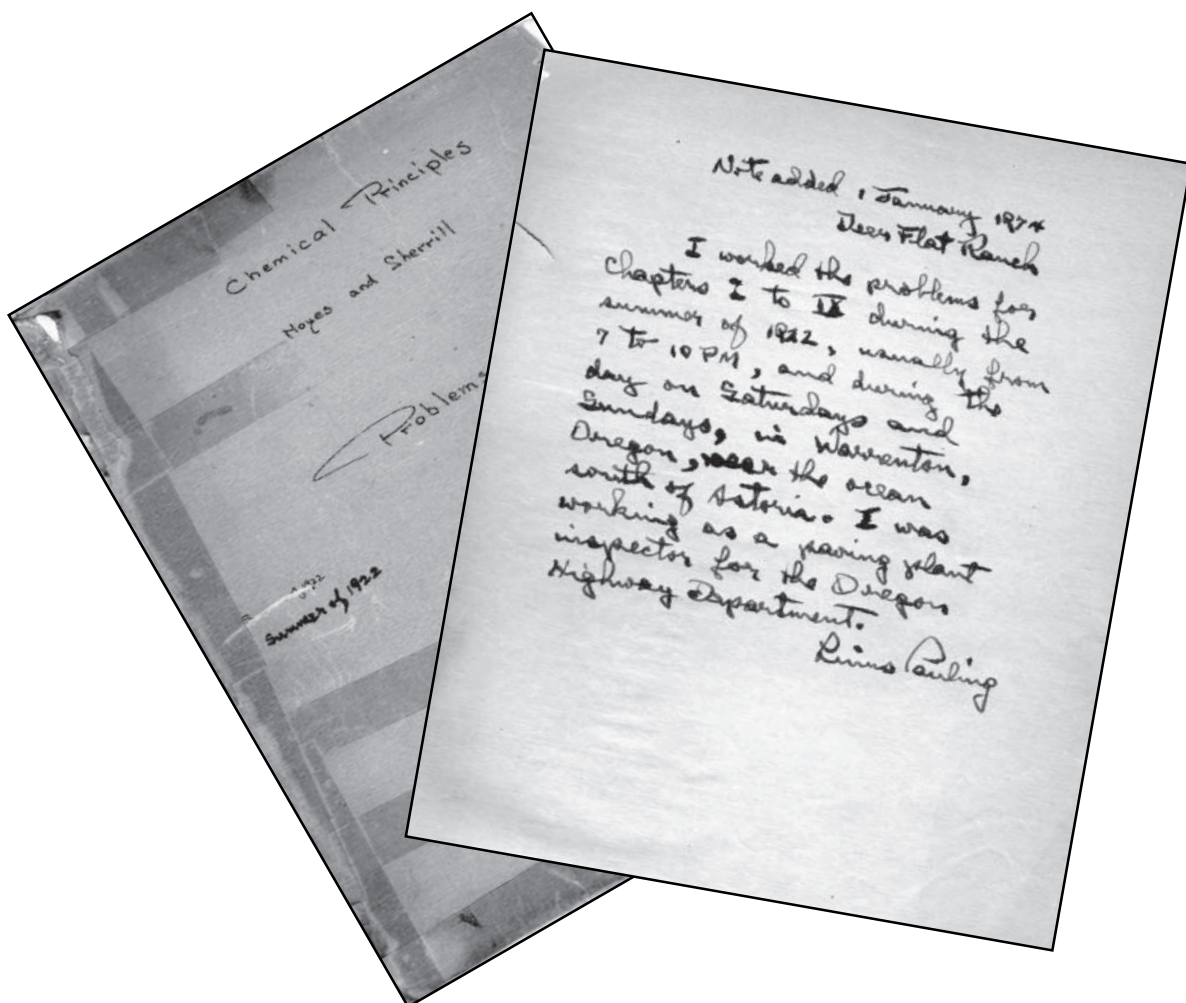 Chemical Principles
Noyes and Sherrill
Problems
Summer of 1922
Note added, January 1974
Deer Flat Ranch
I worked the problems for
chapters I to IX during the
summer of 1922, usually from
7 to 10 PM, and during the
day on Saturdays and
Sundays, in Warrenton,
Oregon, near the ocean
south of Astoria. I was
working as a paving plant
inspector for the Oregon
Highway Department.
Linus Pauling